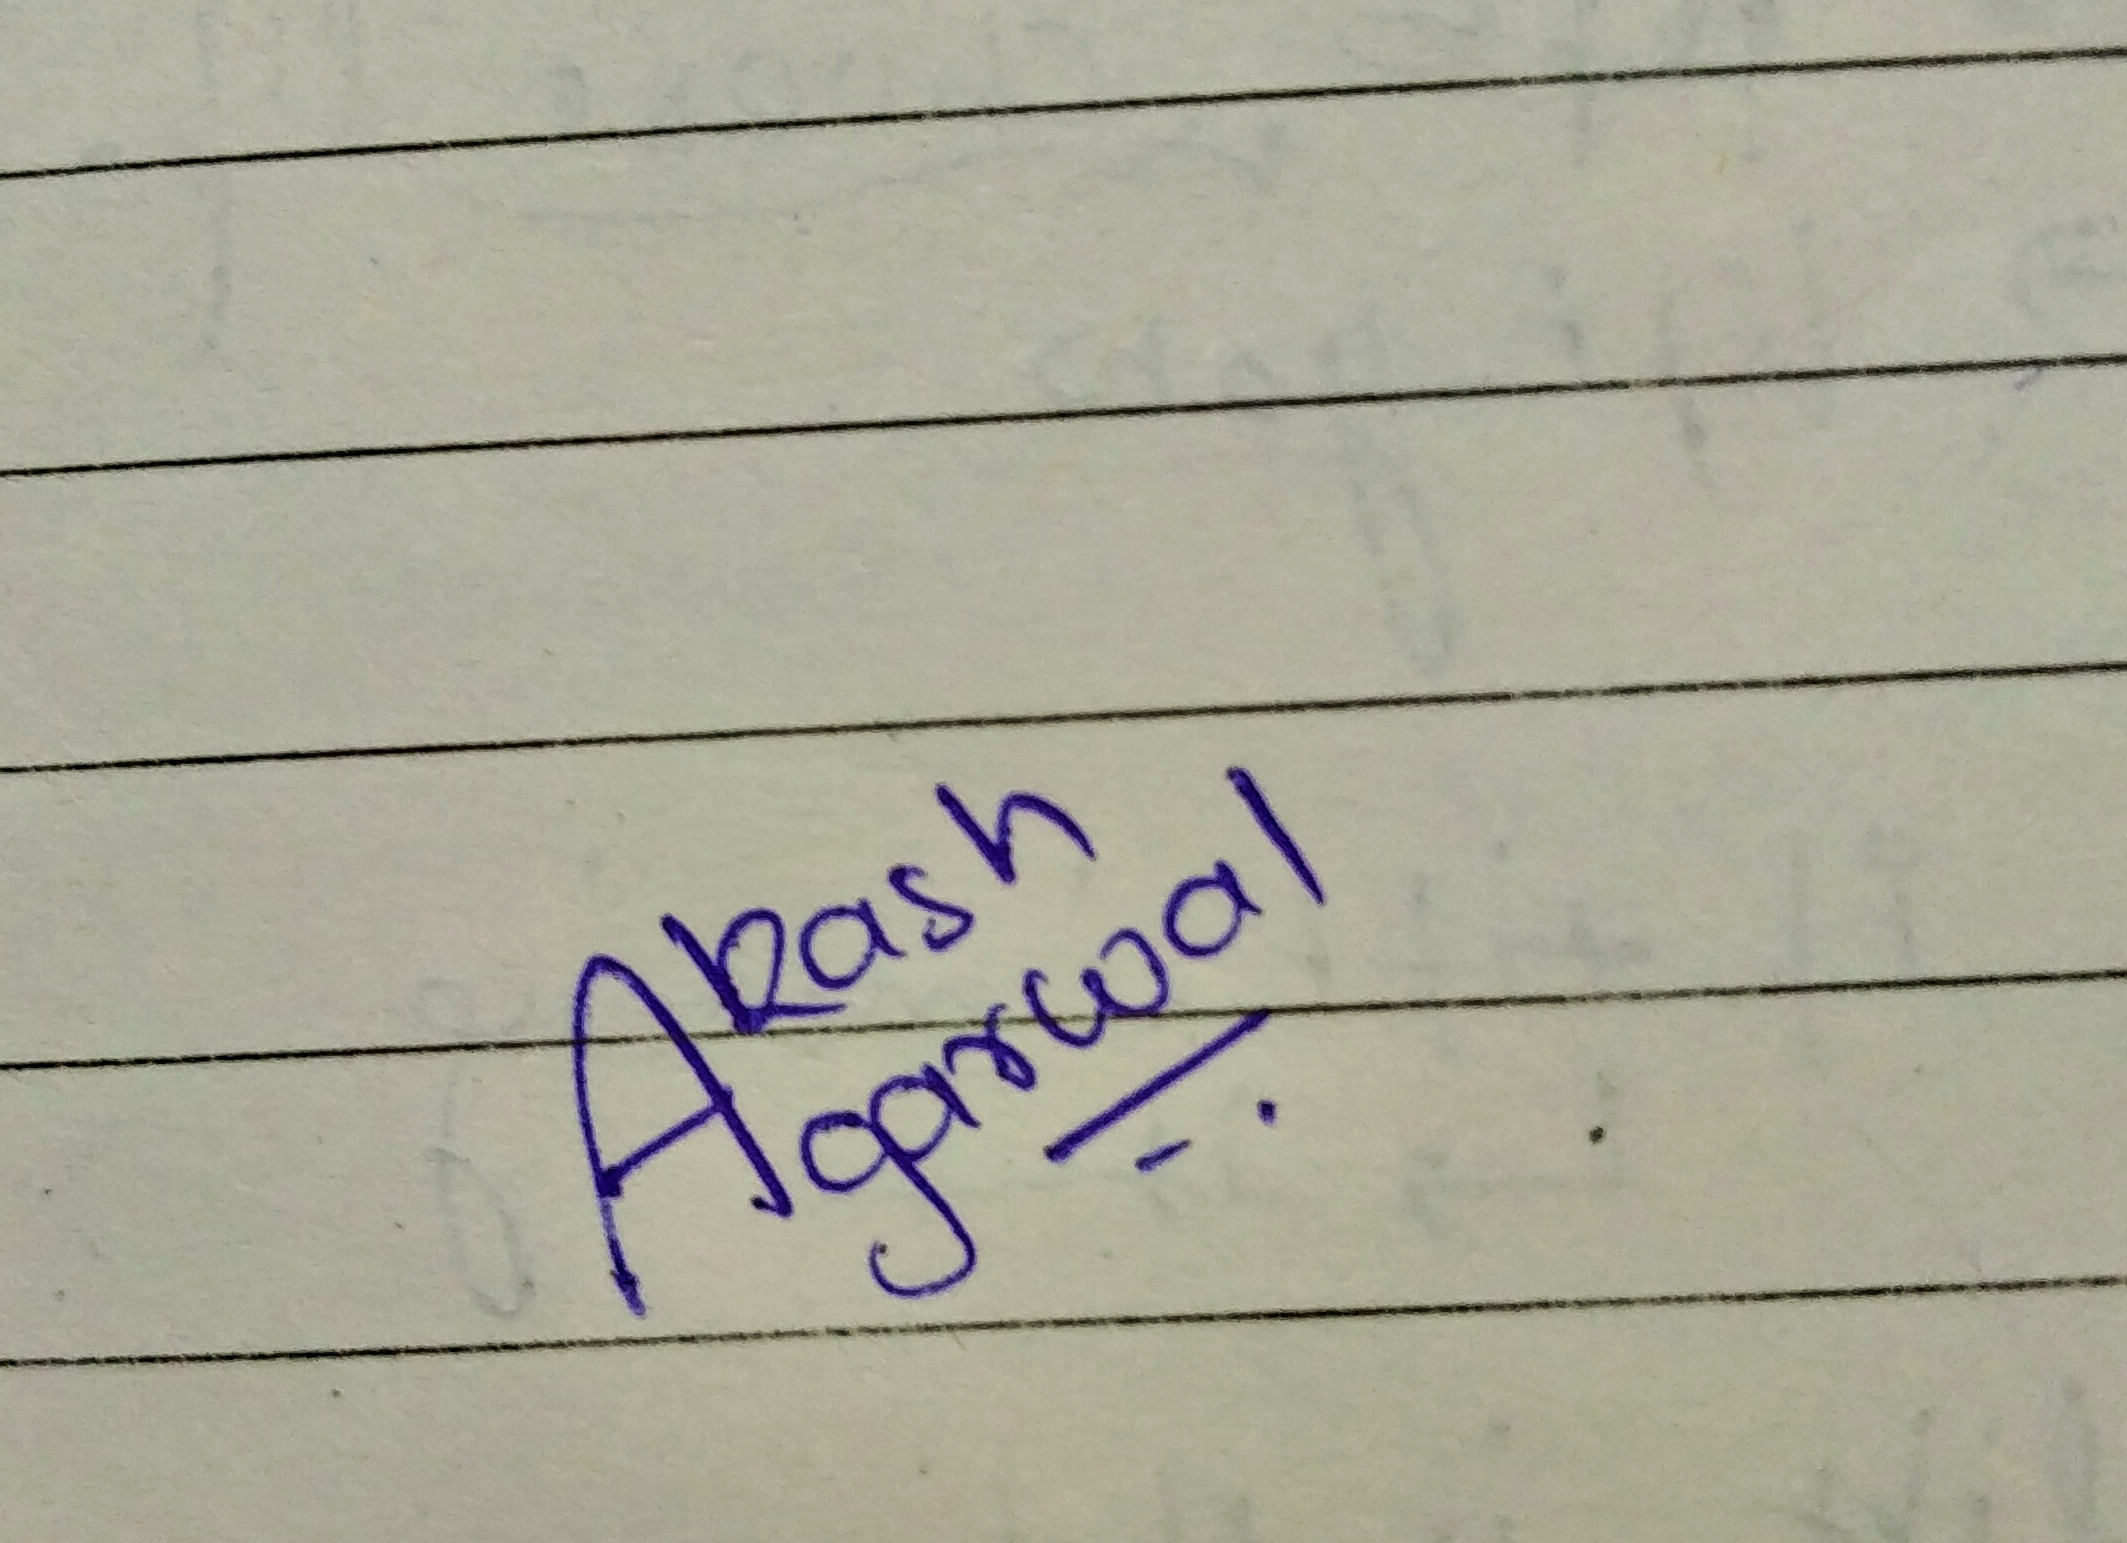 Akash
Agarwal